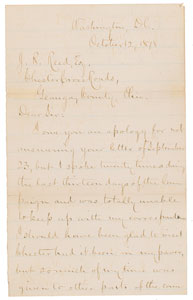 Washington, D.C.
October 12, 1878
J. R. Reed, Esq.
Chester Cross Roads,
Geauga County, Ohio.
Dear Sir:
I owe you an apology for not
answering your letter of September
23, but I spoke twenty times during
the last thirteen days of the cam-
paign and was totally unable
to keep up with my correspondence
I should have been glad to meet
Chester had it been in my power,
but so much of my time was
given to other parts of the